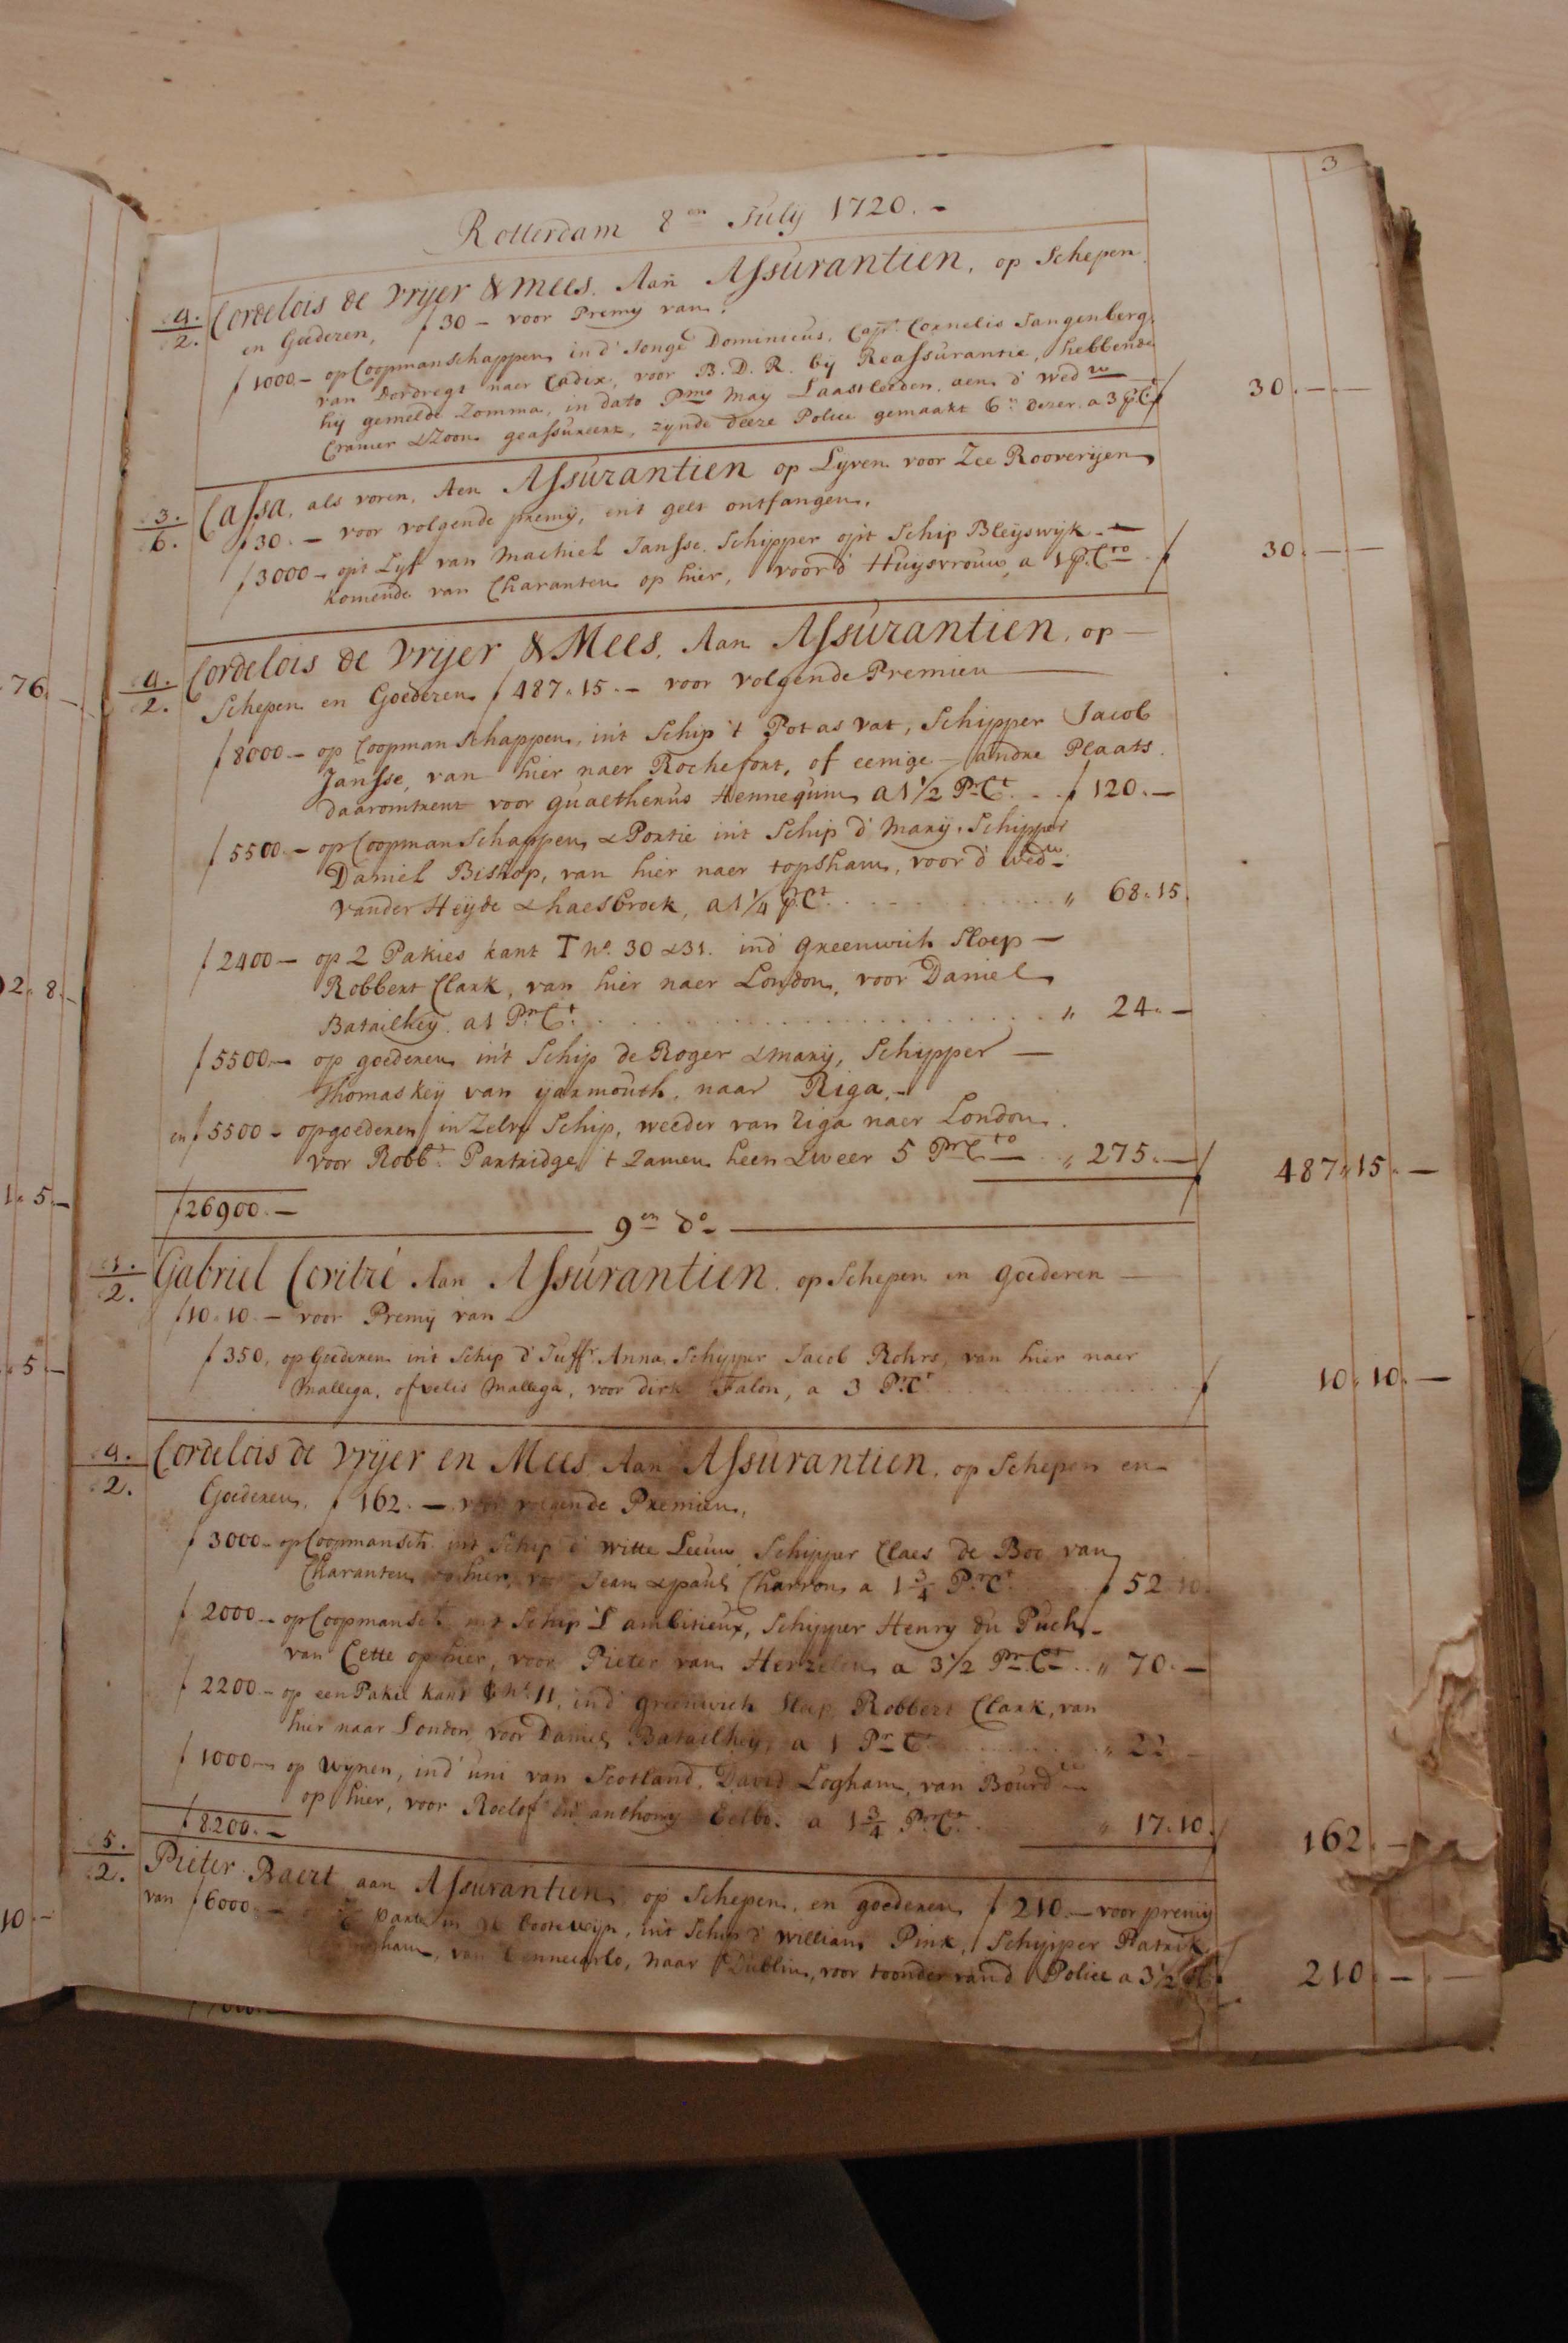 3
Rotterdam 8en July 1720. -
4. / 2. Cordelois de Vrijer & Mees. Aan Assurantien, op Schepen
en Goederen, f 30 - voor Premy van.
f 1000 - op Coopmanschappen in d' Jonge Dominicus, Capt. Cornelis Tangenberg,
van Dordregt naer Cadix, voor B. D. R. bij Reassurantie, hebbende
hij gemelde Zomma, in dato Pmo May Laastleeden, aen d' Wedw
Cramer & Zoon geassureert, zynde deeze Police gemaakt 6n dezer a 3 p Ct f 30. - -
3. / 6. Cassa, als voren, Aen Assurantien op Lyven voor Zee Rooverijen
f 30. - voor volgende premij, int gelt ontfangen.
f 3000 - opt Lyf van Machiel Jansse, Schipper op't Schip Bleijswijk -
komende van Charanten op hier, voor d' Huijsvrouw a 1 p. Cto f 30. - -
4. / 2. Cordelois de Vrijer & Mees, Aan Assurantien, op -
Schepen en Goederen f 487. 15. - voor volgende Premien
f 8000 - op Coopmanschappen, in't Schip 't Pot as Vat, Schipper Jacob
Jansse, van hier naer Rochefort, of eenige andre Plaats
daaromtrent voor Gualtherus Hennequin a 1 1/2 Pr Ct. f 120. -
f 5500. - op Coopmanschappen & Portie in't Schip d' Mary, Schipper
Daniel Bishop, van hier naer topsham, voor d' Wedw
vander Heyde & haesbroek, a 1 1/4 p. Ct. " 68. 15.
f 2400 - op 2 Pakies kant T No. 30 & 31. in d' Greenwich Sloep -
Robbert Clark, van hier naer London, voor Daniel
Batailhey. a 1 Pr Ct. " 24. -
f 5500. - op goederen in't Schip de Roger & Mary, Schipper -
Thomas Key van yarmouth, naar Riga, -
en f 5500 - op goederen in Zelve Schip, weeder van riga naer London.
voor Robbt. Partridge, t Zamen heen & weer 5 Pr Cto " 275. - f 487. 15. -
f 26900. -
9en do
1. / 2. Gabriel Ceritré Aan Assurantien. op Schepen en goederen -
f 10. 10. - voor Premij van
f 350, op Goederen in't Schip d' Juffr. Anna, Schipper Jacob Rohrs, van hier naer
Mallega, of velis Mallega, voor dirk Talon, a 3 Pr Ct f 10. 10. -
4. / 2. Cordelois de Vrijer en Mees, Aan Assurantien, op Schepen en -
Goederen, f 162. - voor volgende Premien,
f 3000 - op Coopmansch. int Schip d' Witte Leeuw, Schipper Claes de Boo van
Charanten op hier, voor Jean & paul Charron, a 1 3/4 Pr Ct f 52. 10.
f 2000 - op Coopmansch. int Schip L'ambitieux, Schipper Henry du Puch -
van Cette op hier, voor Pieter van Herzelen a 3 1/2 Pr Ct " 70. -
f 2200. - op een Pakie kant No. 11, in d' greenwich Sloep Robbert Clark, van
hier naar London voor Daniel Batailhey, a 1 Pr Ct. " 22 -
f 1000 - op Wynen, in d' uni van Scotland, David Logham, van Bourd
op hier, voor Roelof en anthony Eelbo. a 1 3/4 Pr Ct. " 17. 10. 162. -
f 8200. -
5. / 2. Pieter Baert aan Assurantien op Schepen, en goederen f 210. - voor premij
van f 6000. - in int Schip d' William Pink, Schipper Patrik
van naar Dublin, voor toonder van d' Police a 3 1/2 f 210. - -
76. -
2. 8. -
1. 5. -
5. -
10. -